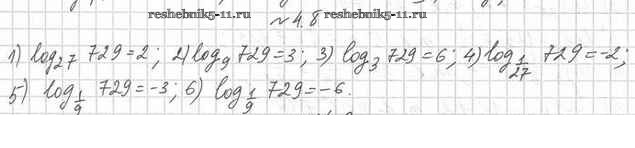 reshebnik5-11.ru
reshebnik5-11.ru
№ 4.8
1) log₂₇ 729 = 2; 2) log₉ 729 = 3; 3) log₃ 729 = 6; 4) log_{1/27} 729 = -2;
5) log_{1/9} 729 = -3; 6) log_{1/9} 729 = -6.